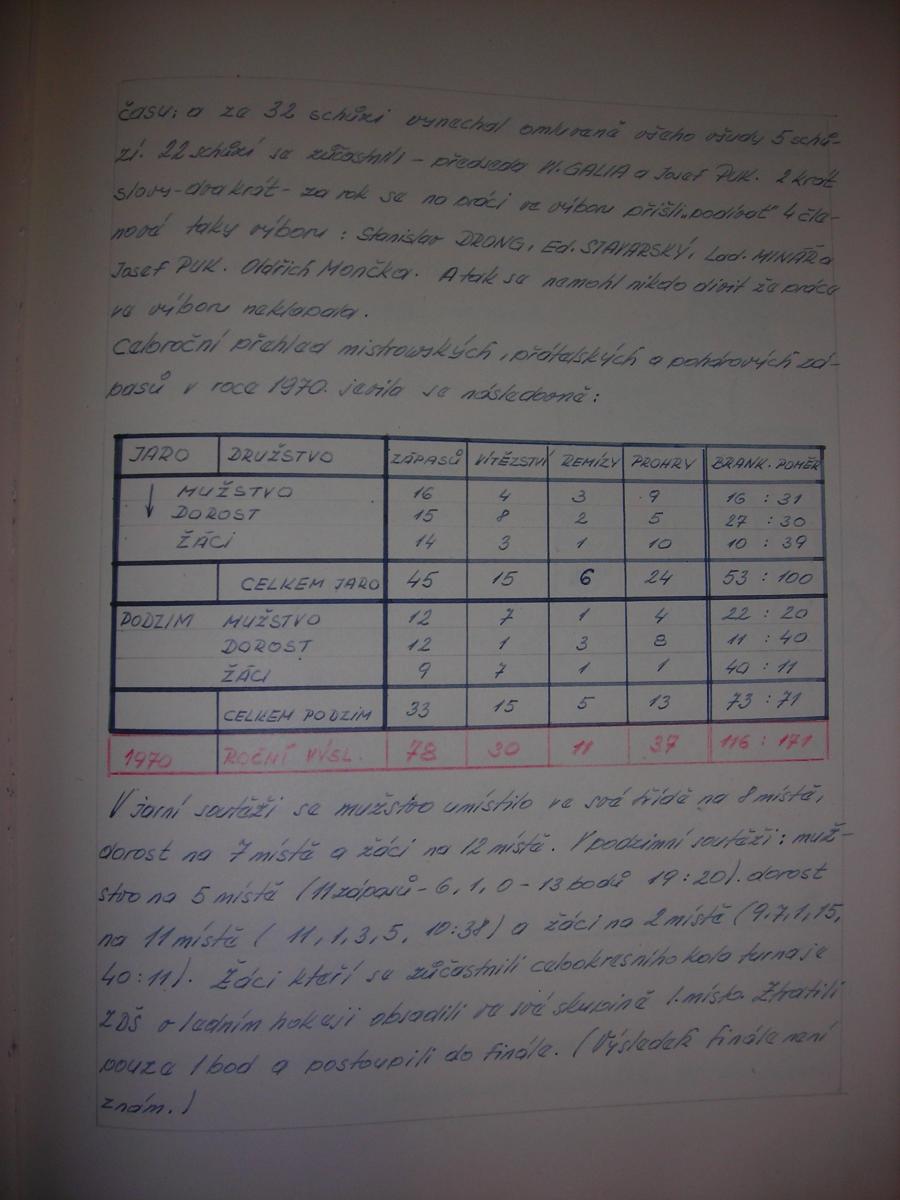 času; a za 32 schůzi vynechal omluveně všeho všudy 5 schů-
zí. 22 schůzí se zůčastnili - předseda W. GALIA a Josef PUK. 2 krát
slovy-dva krát- za rok se na práci ve výboru přišli „podívat" 4 čle-
nové taky výboru: Stanislav DRONG, Ed. STAVARSKÝ, Lad. MINÁŘ a
Josef PUK. Oldřich Mončka. A tak se nemohl nikdo divit že práce
ve výboru neklapala.
Celoroční přehled mistrovských, přátelských a pohárových zá-
pasů v roce 1970. jevila se následovně:
JARO DRUŽSTVO ZÁPASŮ VÍTĚZSTVÍ REMÍZY PROHRY BRANK. POMĚR
↓ MUŽSTVO 16 4 3 9 16 : 31
DOROST 15 8 2 5 27 : 30
ŽÁCI 14 3 1 10 10 : 39
CELKEM JARO 45 15 6 24 53 : 100
PODZIM MUŽSTVO 12 7 1 4 22 : 20
DOROST 12 1 3 8 11 : 40
ŽÁCI 9 7 1 1 40 : 11
CELKEM PODZIM 33 15 5 13 73 : 71
1970 ROČNÍ VÝSL. 78 30 11 37 116 : 171
V jarní soutěži se mužstvo umístilo ve své třídě na 8 místě,
dorost na 7 místě a žáci na 12 místě. V podzimní soutěži: muž-
stvo na 5 místě (11 zápasů - 6, 1, 0 - 13 bodů 19:20). dorost
na 11 místě ( 11, 1, 3, 5, 10:38) a žáci na 2 místě (9,7,1,15,
40:11). Žáci kteří se zůčastnili celookresního kola turnaje
ZDŠ v ledním hokeji obsadili ve své skupině 1. místo. Ztratili
pouze 1 bod a postoupili do finále. (Výsledek finále není
znám.)